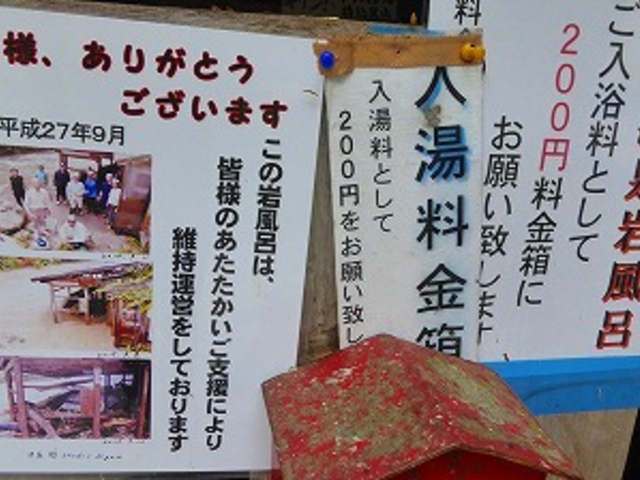 様、ありがとう
ございます
平成27年9月
この岩風呂は、
皆様のあたたかいご支援により
維持運営をしております
入湯料金箱
入湯料として
200円をお願い致し
岩風呂
ご入浴料として
200円料金箱に
お願い致します
料